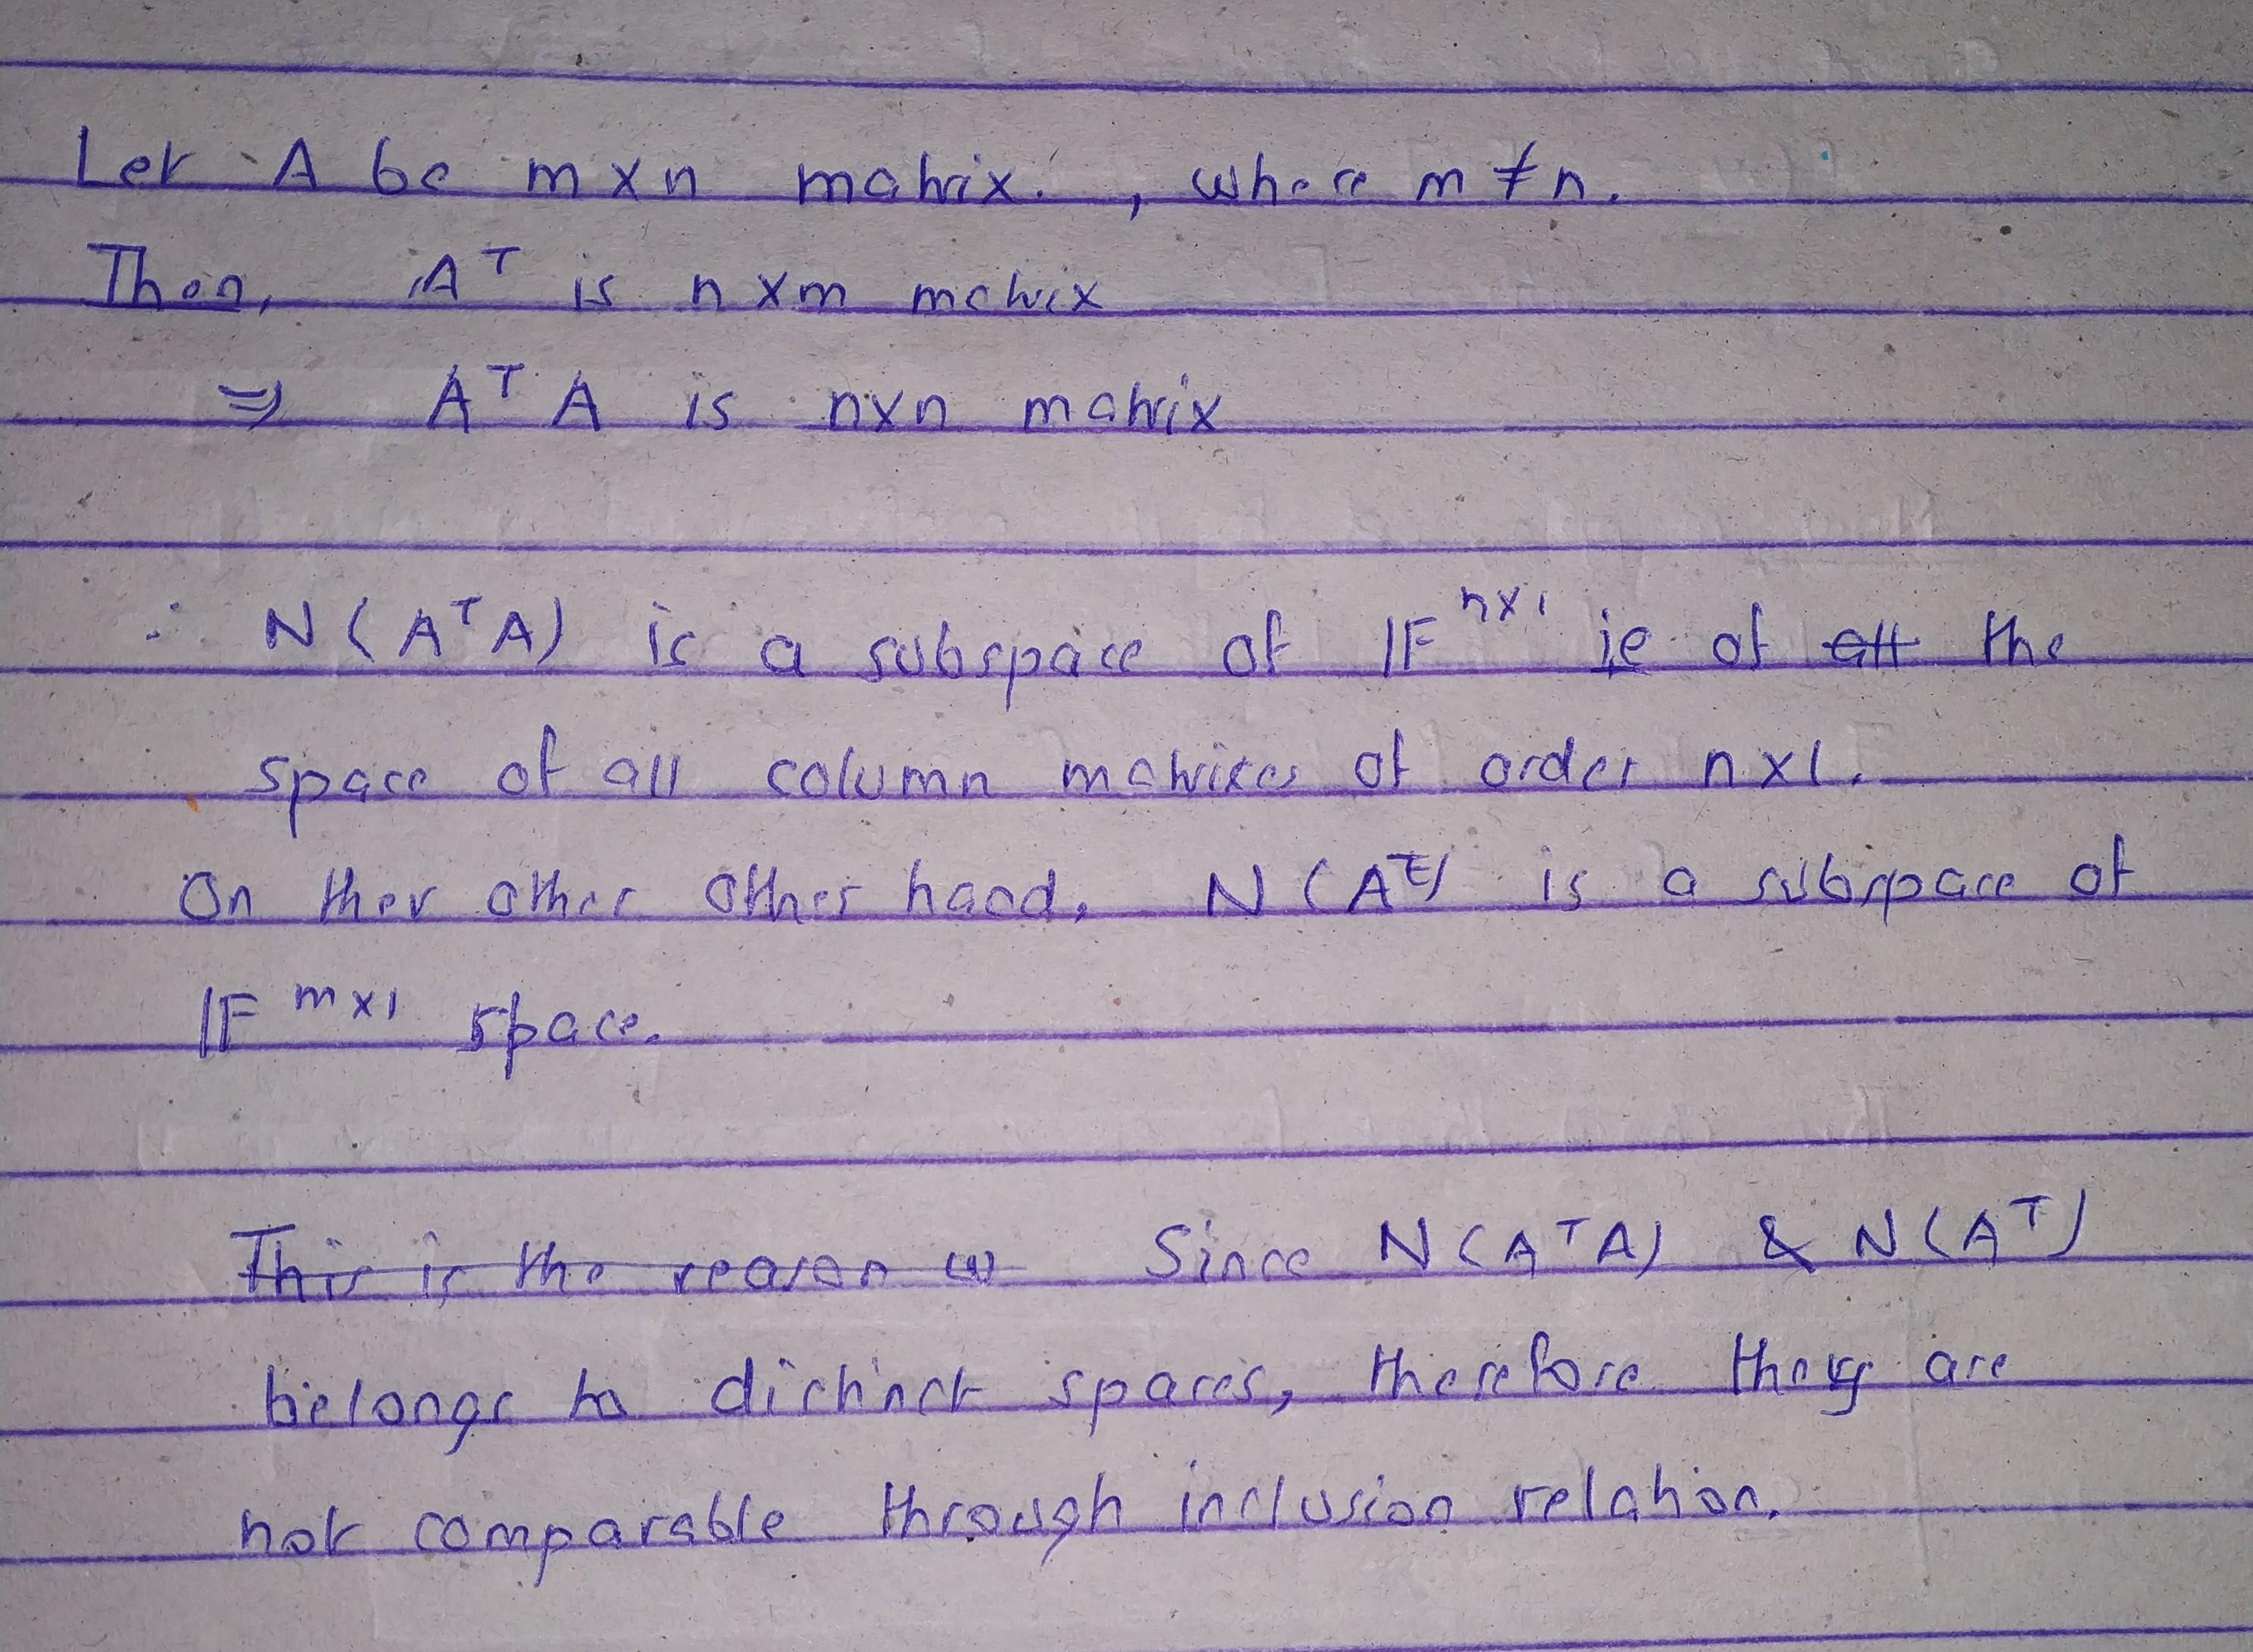 Let A be m x n matrix. , where m ≠ n.
Then, Aᵀ is n x m matrix
⇒ Aᵀ A is nxn matrix
∴ N(AᵀA) is a subspace of IF ⁿˣ¹ ie of all the
space of all column matrixes of order nx1.
On ther other other hand, N(Aᵗ) is a subspace of
IF ᵐˣ¹ space.
This is the reason w Since N(AᵀA) & N(Aᵀ)
belongs to distinct spaces, therefore they are
not comparable through inclusion relation.